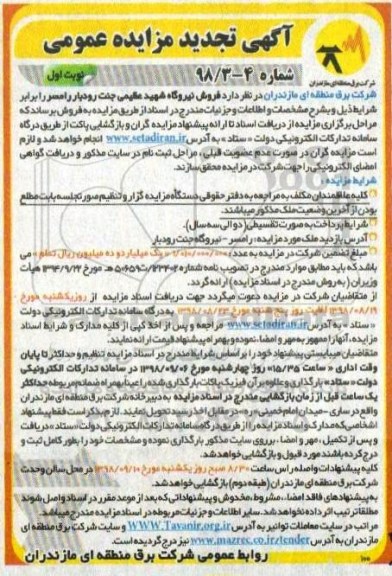 آگهی تجدید مزایده عمومی
شماره ۴-۹۸/۳
نوبت اول
شرکت برق منطقه ای مازندران
شرکت برق منطقه ای مازندران در نظر دارد فروش نیروگاه شهید عظیمی جنت رودبار رامسر را برابر
شرایط ذیل و بشرح مشخصات و اطلاعات و جزئیات مندرج در اسناد از طریق مزایده به فروش برساند که
مراحل برگزاری مزایده از دریافت اسناد تا ارائه پیشنهاد مزایده گران و بازگشایی پاکت از طریق درگاه
سامانه تدارکات الکترونیکی دولت « ستاد » به آدرس www.setadiran.ir انجام خواهد شد و لازم
است مزایده گران در صورت عدم عضویت قبلی ، مراحل ثبت نام در سایت مذکور و دریافت گواهی
امضای الکترونیکی را جهت شرکت در مزایده محقق سازند.
شرایط مزایده :
کلیه علاقمندان مکلف به مراجعه به دفتر حقوقی دستگاه مزایده گزار و تنظیم صورتجلسه بابت مطلع
بودن از آخرین وضعیت ملک مذکور میباشند.
شرایط پرداخت به صورت تقسیطی (دو الی سه سال).
آدرس بازدید ملک مورد مزایده : رامسر - نیروگاه جنت رودبار
مبلغ تضمین شرکت در مزایده به عدد: ۱/۰۱۰/۰۰۰/۰۰۰ « یک میلیارد و ده میلیون ریال تمام » می
باشد که باید مطابق موارد مندرج در تصویب نامه شماره ۱۲۳۴۰۲/ت۵۰۶۵۹ هـ مورخ ۱۳۹۴/۹/۲۲ هیأت
وزیران (به روش مندرج در اسناد مزایده) ارائه گردد.
از متقاضیان شرکت در مزایده دعوت میگردد جهت دریافت اسناد مزایده از روز یکشنبه مورخ
۱۳۹۸/۰۸/۱۹ لغایت روز پنج شنبه مورخ ۱۳۹۸/۰۸/۲۳ به درگاه سامانه تدارکات الکترونیکی دولت
« ستاد » به آدرس www.setadiran.ir مراجعه و پس از اخذ کپی از کلیه مدارک و شرایط اسناد
مزایده، آنها را ممهور به مهر و امضاء نموده و بهمراه پیشنهاد قیمت ارائه نمایند.
متقاضیان میبایستی پیشنهاد خود را بر اساس شرایط مندرج در اسناد مزایده تنظیم و حداکثر تا پایان
وقت اداری « ساعت ۱۵/۳۵» روز چهارشنبه مورخ ۱۳۹۸/۰۹/۰۶ در سامانه تدارکات الکترونیکی
دولت « ستاد» بارگذاری و علاوه بر آن فیزیک پاکات بارگذاری شده را عیناً بهمراه ضمائم مربوطه حداکثر
یک ساعت قبل از زمان بازگشایی مندرج در اسناد مزایده به دبیرخانه شرکت برق منطقه ای مازندران
واقع در ساری -میدان امام خمینی«ره»- در مقابل اخذ رسید تحویل نمایند. لازم بذکر است فقط پیشنهاد
اشخاصی که مدارک و اسناد مزایده را از طریق درگاه سامانه تدارکات الکترونیکی دولت «ستاد» دریافت
و پس از تکمیل، مهر و امضاء ، بر روی سایت مذکور بارگذاری نموده و مشخصات خود را بطور کامل ثبت و
درج کرده باشند مورد قبول و بازگشایی خواهد شد.
کلیه پیشنهادات واصله راس ساعت ۸/۳۰ صبح روز یکشنبه مورخ ۱۳۹۸/۰۹/۱۰ در محل سالن وحدت
شرکت برق منطقه ای مازندران (طبقه دوم) بازگشایی خواهد شد.
به پیشنهادهای فاقد امضاء ، مشروط، مخدوش و پیشنهاداتی که بعد از موعد مقرر در اسناد واصل شوند
مطلقا ترتیب اثر داده نخواهد شد. سایر اطلاعات و جزئیات مربوطه در اسناد مزایده مندرج میباشد.
مراتب در سایت معاملات توانیر به آدرس WWW.Tavanir.org.ir و سایت شرکت برق منطقه ای
مازندران به آدرس www.mazrec.co.ir/tender نیز درج گردیده است.
روابط عمومی شرکت برق منطقه ای مازندران